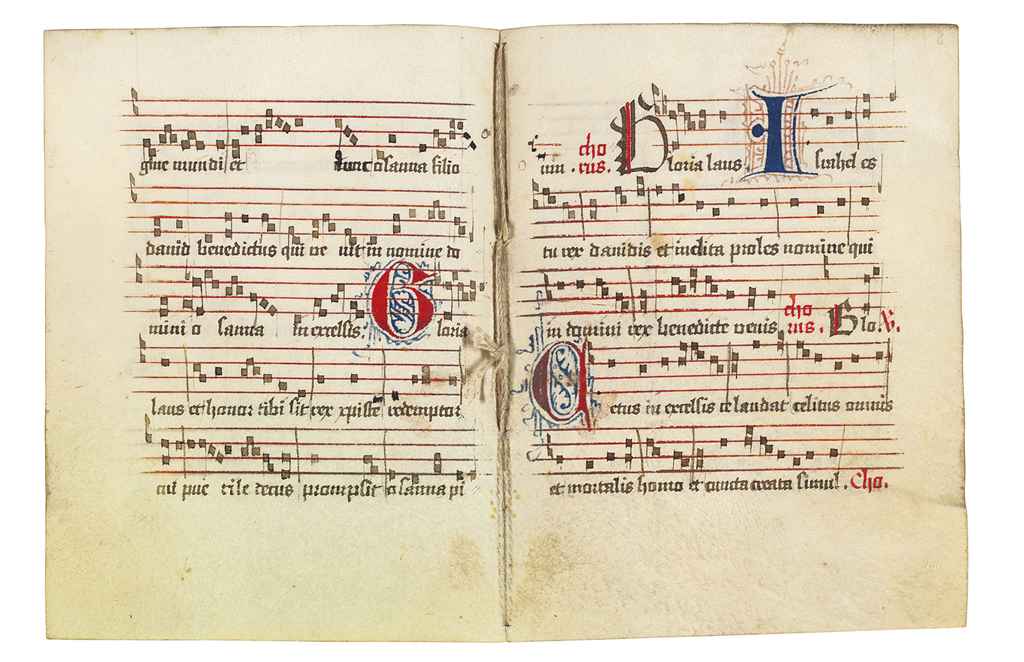 que mundi et tunc osanna filio
dauid benedictus qui ue nit in nomine do
mini o sanna in excelsis. Gloria
laus et honor tibi sit rex xpiste redemptor
cui pue rile decus prompsit osanna pi
um. cho rus. Gloria laus. Israhel es
tu rex dauidis et inclita proles nomine qui
in domini rex benedicte uenis. cho rus. Glo. V.
Cetus in excelsis te laudat celitus omnis
et mortalis homo et cuncta creata simul. Cho.